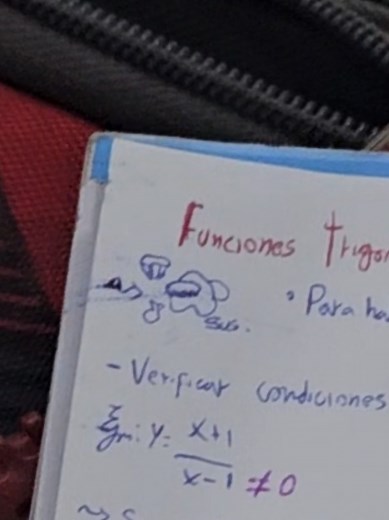 Funciones trigo
• Para ha
Sub.
- Verificar condiciones
y = x+1
x-1 ≠ 0